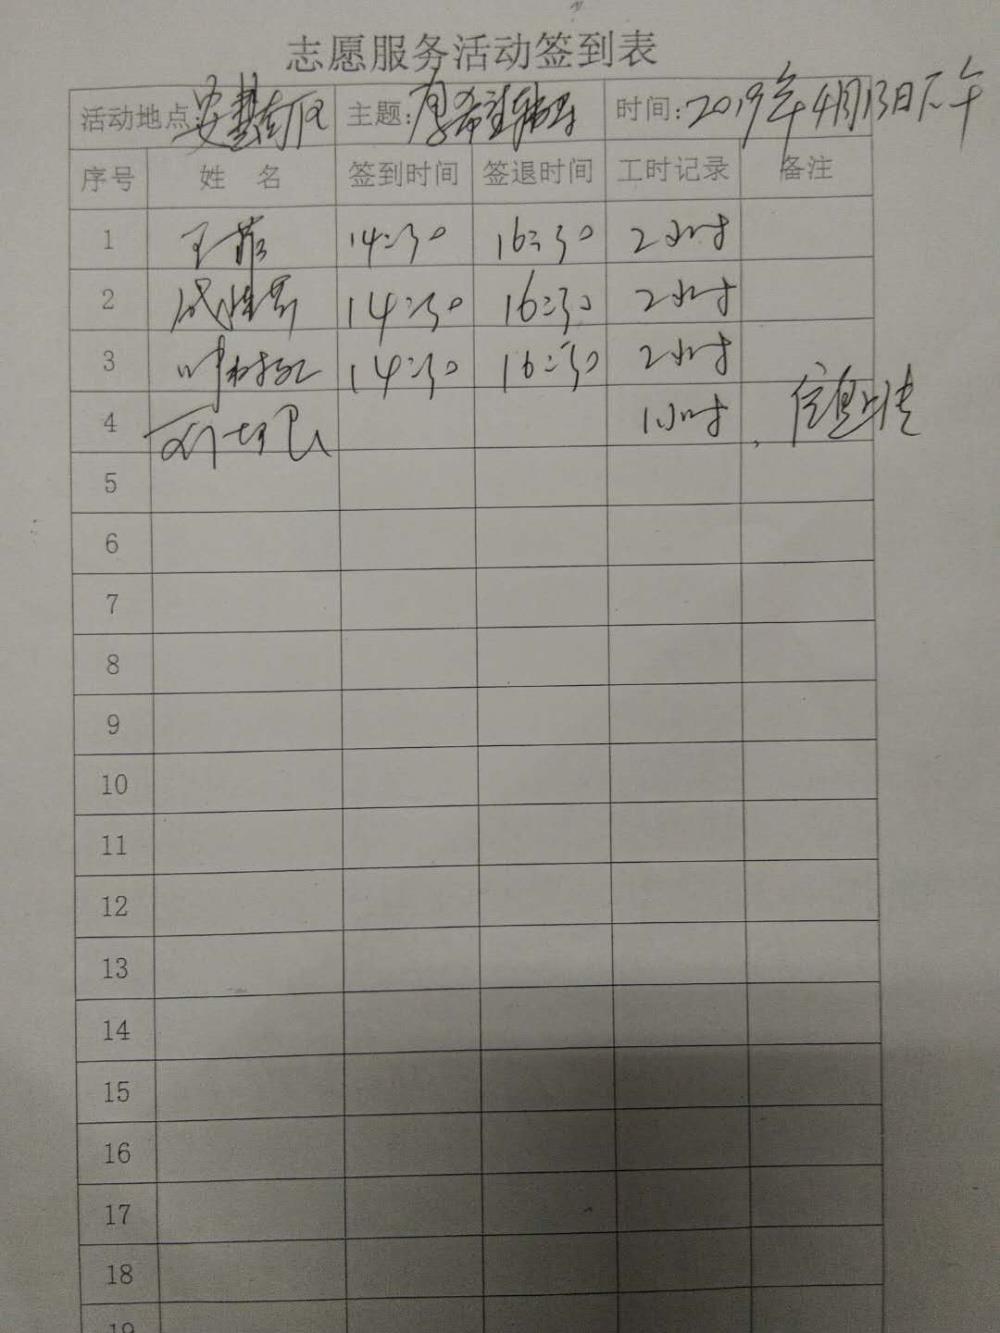 志愿服务活动签到表
活动地点 安慧南区 主题: 时间: 2019年4月13日下午
序号 姓 名 签到时间 签退时间 工时记录 备注
1 王 14:30 16:30 2小时
2 14:30 16:30 2小时
3 叶 14:30 16:30 2小时
4 1小时 信息上传
5
6
7
8
9
10
11
12
13
14
15
16
17
18
19